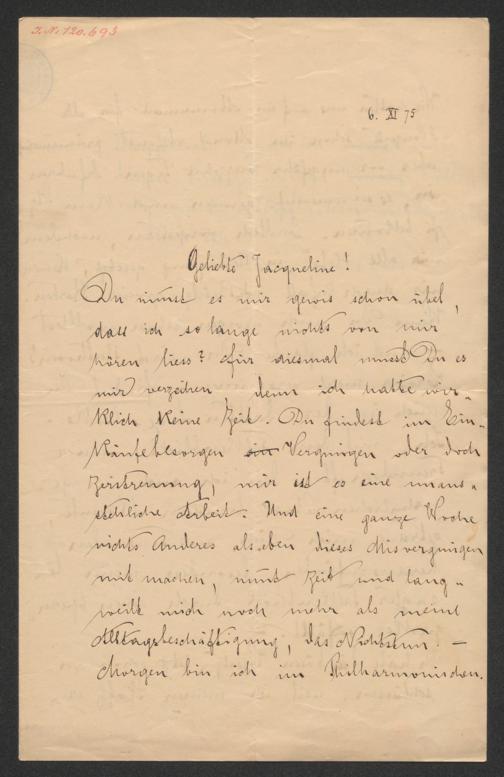 I.N. 120.693
6. XI 75
Geliebte Jacqueline!
Du nimst es mir gewis schon übel,
dass ich so lange nichts von mir
hören liess? Für diesmal musst Du es
mir verzeihen, denn ich hatte wir-
klich keine Zeit. Du findest im Ein-
käufebesorgen ein Vergnügen oder doch
Zerstreuung, mir ist es eine unaus-
stehliche Arbeit. Und eine ganze Woche
nichts Anderes als eben dieses Misvergnügen
mit machen, nimt Zeit und lang-
weilt mich noch mehr als meine
Alltagsbeschäftigung, das Nichtstun. —
Morgen bin ich im Philharmonischen.